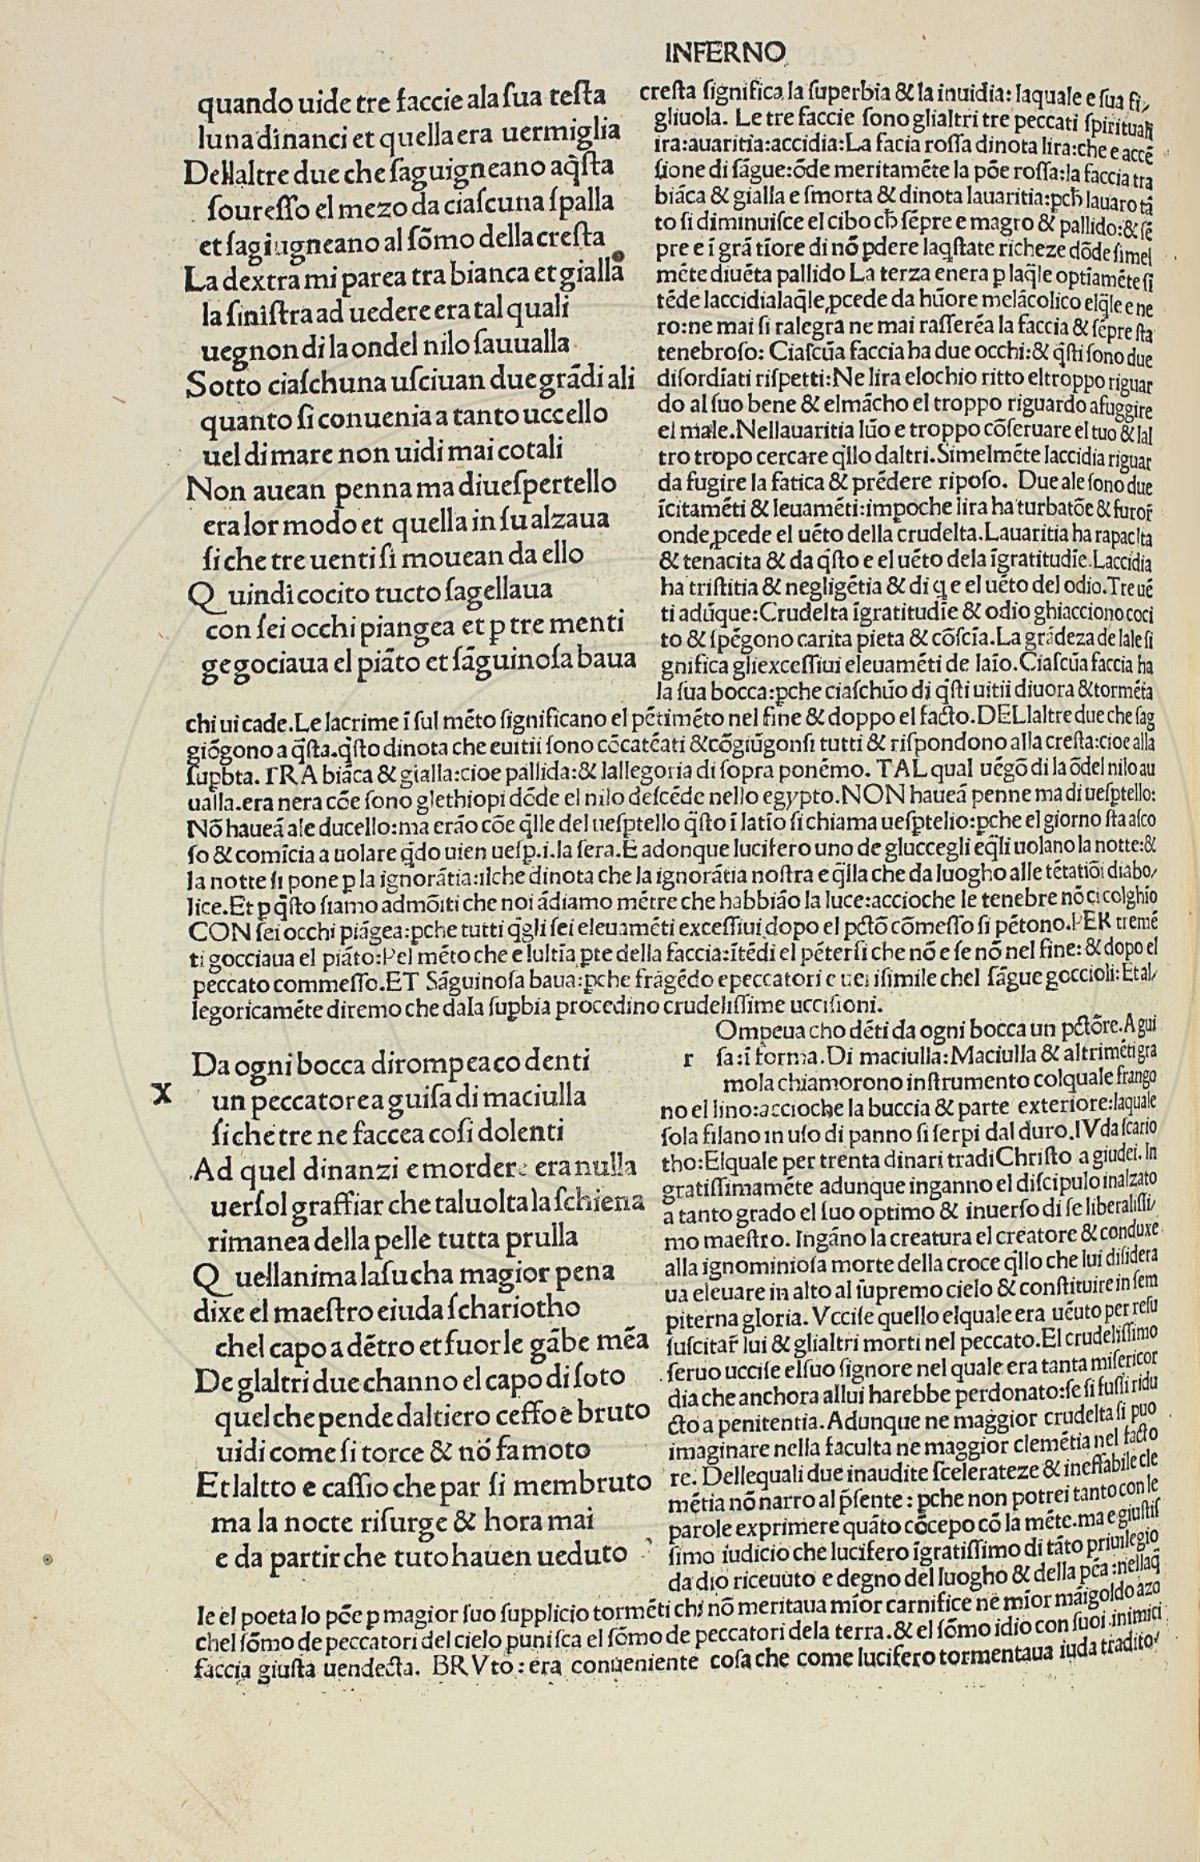 INFERNO
quando uide tre faccie ala sua testa
luna dinanci et quella era uermiglia
Dellaltre due che saguigneano aq̃sta
souresso el mezo da ciascuna spalla
et sagiugneano al sõmo della cresta
La dextra mi parea tra bianca et gialla
la sinistra ad uedere era tal quali
uegnon di la ondel nilo sauualla
Sotto ciaschuna usciuan due grãdi ali
quanto si conuenia a tanto uccello
uel di mare non uidi mai cotali
Non auean penna ma di uespertello
era lor modo et quella in su alzaua
si che tre uenti si mouean da ello
Quindi cocito tucto sagellaua
con sei occhi piangea et ꝑ tre menti
gegociaua el piãto et sãguinosa baua
cresta significa la superbia & la inuidia: laquale e sua fi,
gliuola. Le tre faccie sono glialtri tre peccati spirituali
ira:auaritia:accidia:La facia rossa dinota lira:che e accẽ
sione di sãgue:õde meritamẽte la põe rossa:la faccia tra
biãca & gialla e smorta & dinota lauaritia:ꝑch̃ lauaro tã
to si diminuisce el cibo ch̃ sẽpre e magro & pallido:& sẽ
pre e ĩ grã tĩore di nõ ꝑdere laq̃state richeze dõde simel
mẽte diuẽta pallido La terza enera ꝑ laq̃le optĩamẽte si
tẽde laccidialaq̃le ꝓcede da hũore melãcolico elq̃le e ne
ro:ne mai si ralegra ne mai rasserẽa la faccia & sẽpre sta
tenebroso: Ciascũa faccia ha due occhi:& q̃sti sono due
disordĩati rispetti:Ne lira elochio ritto eltroppo riguar
do al suo bene & elmãcho el troppo riguardo afuggire
el male.Nellauaritia lũo e troppo cõseruare el tuo & lal
tro tropo cercare q̃llo daltri.Simelmẽte laccidia riguar
da fugire la fatica & prẽdere riposo. Due ale sono due
ĩcitamẽti & leuamẽti:impoche lira ha turbatõe & furor̃
onde ꝓcede el uẽto della crudelta.Lauaritia ha rapacita
& tenacita & da q̃sto e el uẽto dela ĩgratitudĩe.Laccidia
ha tristitia & negligẽtia & di q̃ e el uẽto del odio.Tre uẽ
ti adũque:Crudelta ĩgratitudĩe & odio ghiacciono coci
to & spẽgono carita pieta & cõscĩa.La grãdeza de lale si
gnifica gliexcessiui eleuamẽti de laĩo.Ciascũa faccia ha
la sua bocca:ꝑche ciaschũo di q̃sti uitii diuora & tormẽta
chi ui cade.Le lacrime ĩ sul mẽto significano el pẽtimẽto nel fine & doppo el facto.DELlaltre due che sag
giõgono a q̃sta.q̃sto dinota che euitii sono cõcatẽati & cõgiũgonsi tutti & rispondono alla cresta:cioe alla
supꝑbta. TRA biãca & gialla:cioe pallida:& lallegoria di sopra ponẽmo. TAL qual uẽgõ di la õdel nilo au
ualla.era nera cõe sono glethiopi dõde el nilo descẽde nello egypto.NON haueã penne ma di uesꝑtello:
Nõ haueã ale ducello:ma erão cõe q̃lle del uesꝑtello q̃sto ĩ latĩo si chiama uesꝑtelio:ꝑche el giorno sta asco
so & comĩcia a uolare q̃do uien uesꝑ.i.la sera.E adonque lucifero uno de gluccegli eq̃li uolano la notte:&
la notte si pone ꝑ la ignorãtia:ilche dinota che la ignorãtia nostra e q̃lla che da luogho alle tẽtatiõi diabo,
lice.Et ꝑ q̃sto siamo admõiti che noi ãdiamo mẽtre che habbião la luce:accioche le tenebre nõ ci colghio
CON sei occhi piãgea:ꝑche tutti q̃gli sei eleuamẽti excessiui dopo el pctõ cõmesso si pẽtono.PER tre mẽ
ti gocciaua el piãto:Pel mẽto che e lultĩa ꝑte della faccia:ĩtẽdi el pẽtersi che nõ e se nõ nel fine: & dopo el
peccato commesso.ET Sãguinosa baua:ꝑche fragẽdo epeccatori e uei isimile chel sãgue goccioli: Et al,
legoricamẽte diremo che dala supꝑbia procedino crudelissime uccisioni.
Da ogni bocca dirompea co denti
X un peccatore a guisa di maciulla
si che tre ne faccea cosi dolenti
Ad quel dinanzi e mordere era nulla
uersol graffiar che taluolta la schiena
rimanea della pelle tutta prulla
Quellanima lasu cha magior pena
dixe el maestro eiuda schariotho
chel capo a dẽtro et fuor le gãbe mẽa
De glaltri due channo el capo di soto
quel che pende daltiero ceffo e bruto
uidi come si torce & nõ fa moto
Et laltto e cassio che par si membruto
ma la nocte risurge & hora mai
e da partir che tuto hauen ueduto
Ompeua cho dẽti da ogni bocca un pctõre.A gui
r sa:ĩ forma.Di maciulla:Maciulla & altrimẽti gra
mola chiamorono instrumento colquale frango
no el lino:accioche la buccia & parte exteriore:laquale
sola filano in uso di panno si serpi dal duro.IVda scario
tho:Elquale per trenta dinari tradi Christo a giudei. In
gratissimamẽte adunque inganno el discipulo inalzato
a tanto grado el suo optimo & inuerso di se liberalissi,
mo maestro. Ingãno la creatura el creatore & conduxe
alla ignominiosa morte della croce q̃llo che lui disidera
ua eleuare in alto al supremo cielo & constituire in sem
piterna gloria. Vccise quello elquale era uẽuto per resu
suscitar̃ lui & glialtri morti nel peccato.El crudelissimo
seruo uccise elsuo signore nel quale era tanta misericor
dia che anchora allui harebbe perdonato:se si fussi ridu
cto a penitentia.Adunque ne maggior crudelta si puo
imaginare nella faculta ne maggior clemẽtia nel facto
re. Dellequali due inaudite scelerateze & ineffabile cle
mẽtia nõ narro al p̃sente: ꝑche non potrei tanto con le
parole exprimere quãto cõcepo cõ la mẽte.ma e giustis
simo iudicio che lucifero ĩgratissimo di tãto priuilegio
da dio riceuuto e degno del luogho & della pẽa:nellaq̃
le el poeta lo põe ꝑ magior suo supplicio tormẽti chi nõ meritaua mĩor carnifice ne mĩor mãigoldo azo
chel sõmo de peccatori del cielo punisca el sõmo de peccatori dela terra.& el sõmo idio con suoi inimici
faccia giusta uendecta. BRVto: era conueniente cosa che come lucifero tormentaua iuda tradito,